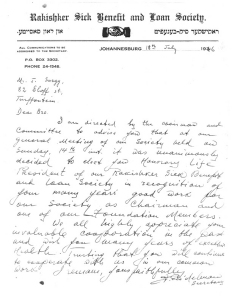 Rakishker Sick Benefit and Loan Society.
ראקישקער סיק בענעפיט
און לאון סאסייעטי.
ALL COMMUNICATIONS TO BE
ADDRESSED TO THE SECRETARY
P.O. BOX 2902.
PHONE 24-1548.
JOHANNESBURG 18th July
Mr. J.
82 St,
Dear Bro
I am directed by the Chairman and
Committee to advise you that at our
general meeting of our Society held on
Sunday, it was unanimously
decided to elect you Honorary Life
President of our Rakishker Sick Benefit
and Loan Society in recognition of
your many years good work for
our Society as Chairman and
one of our Foundation Members.
We all highly appreciate your
invaluable cooperation in the past
and wish you many years of
health trusting that you will continue
to assist us in our
work I remain, Yours faithfully